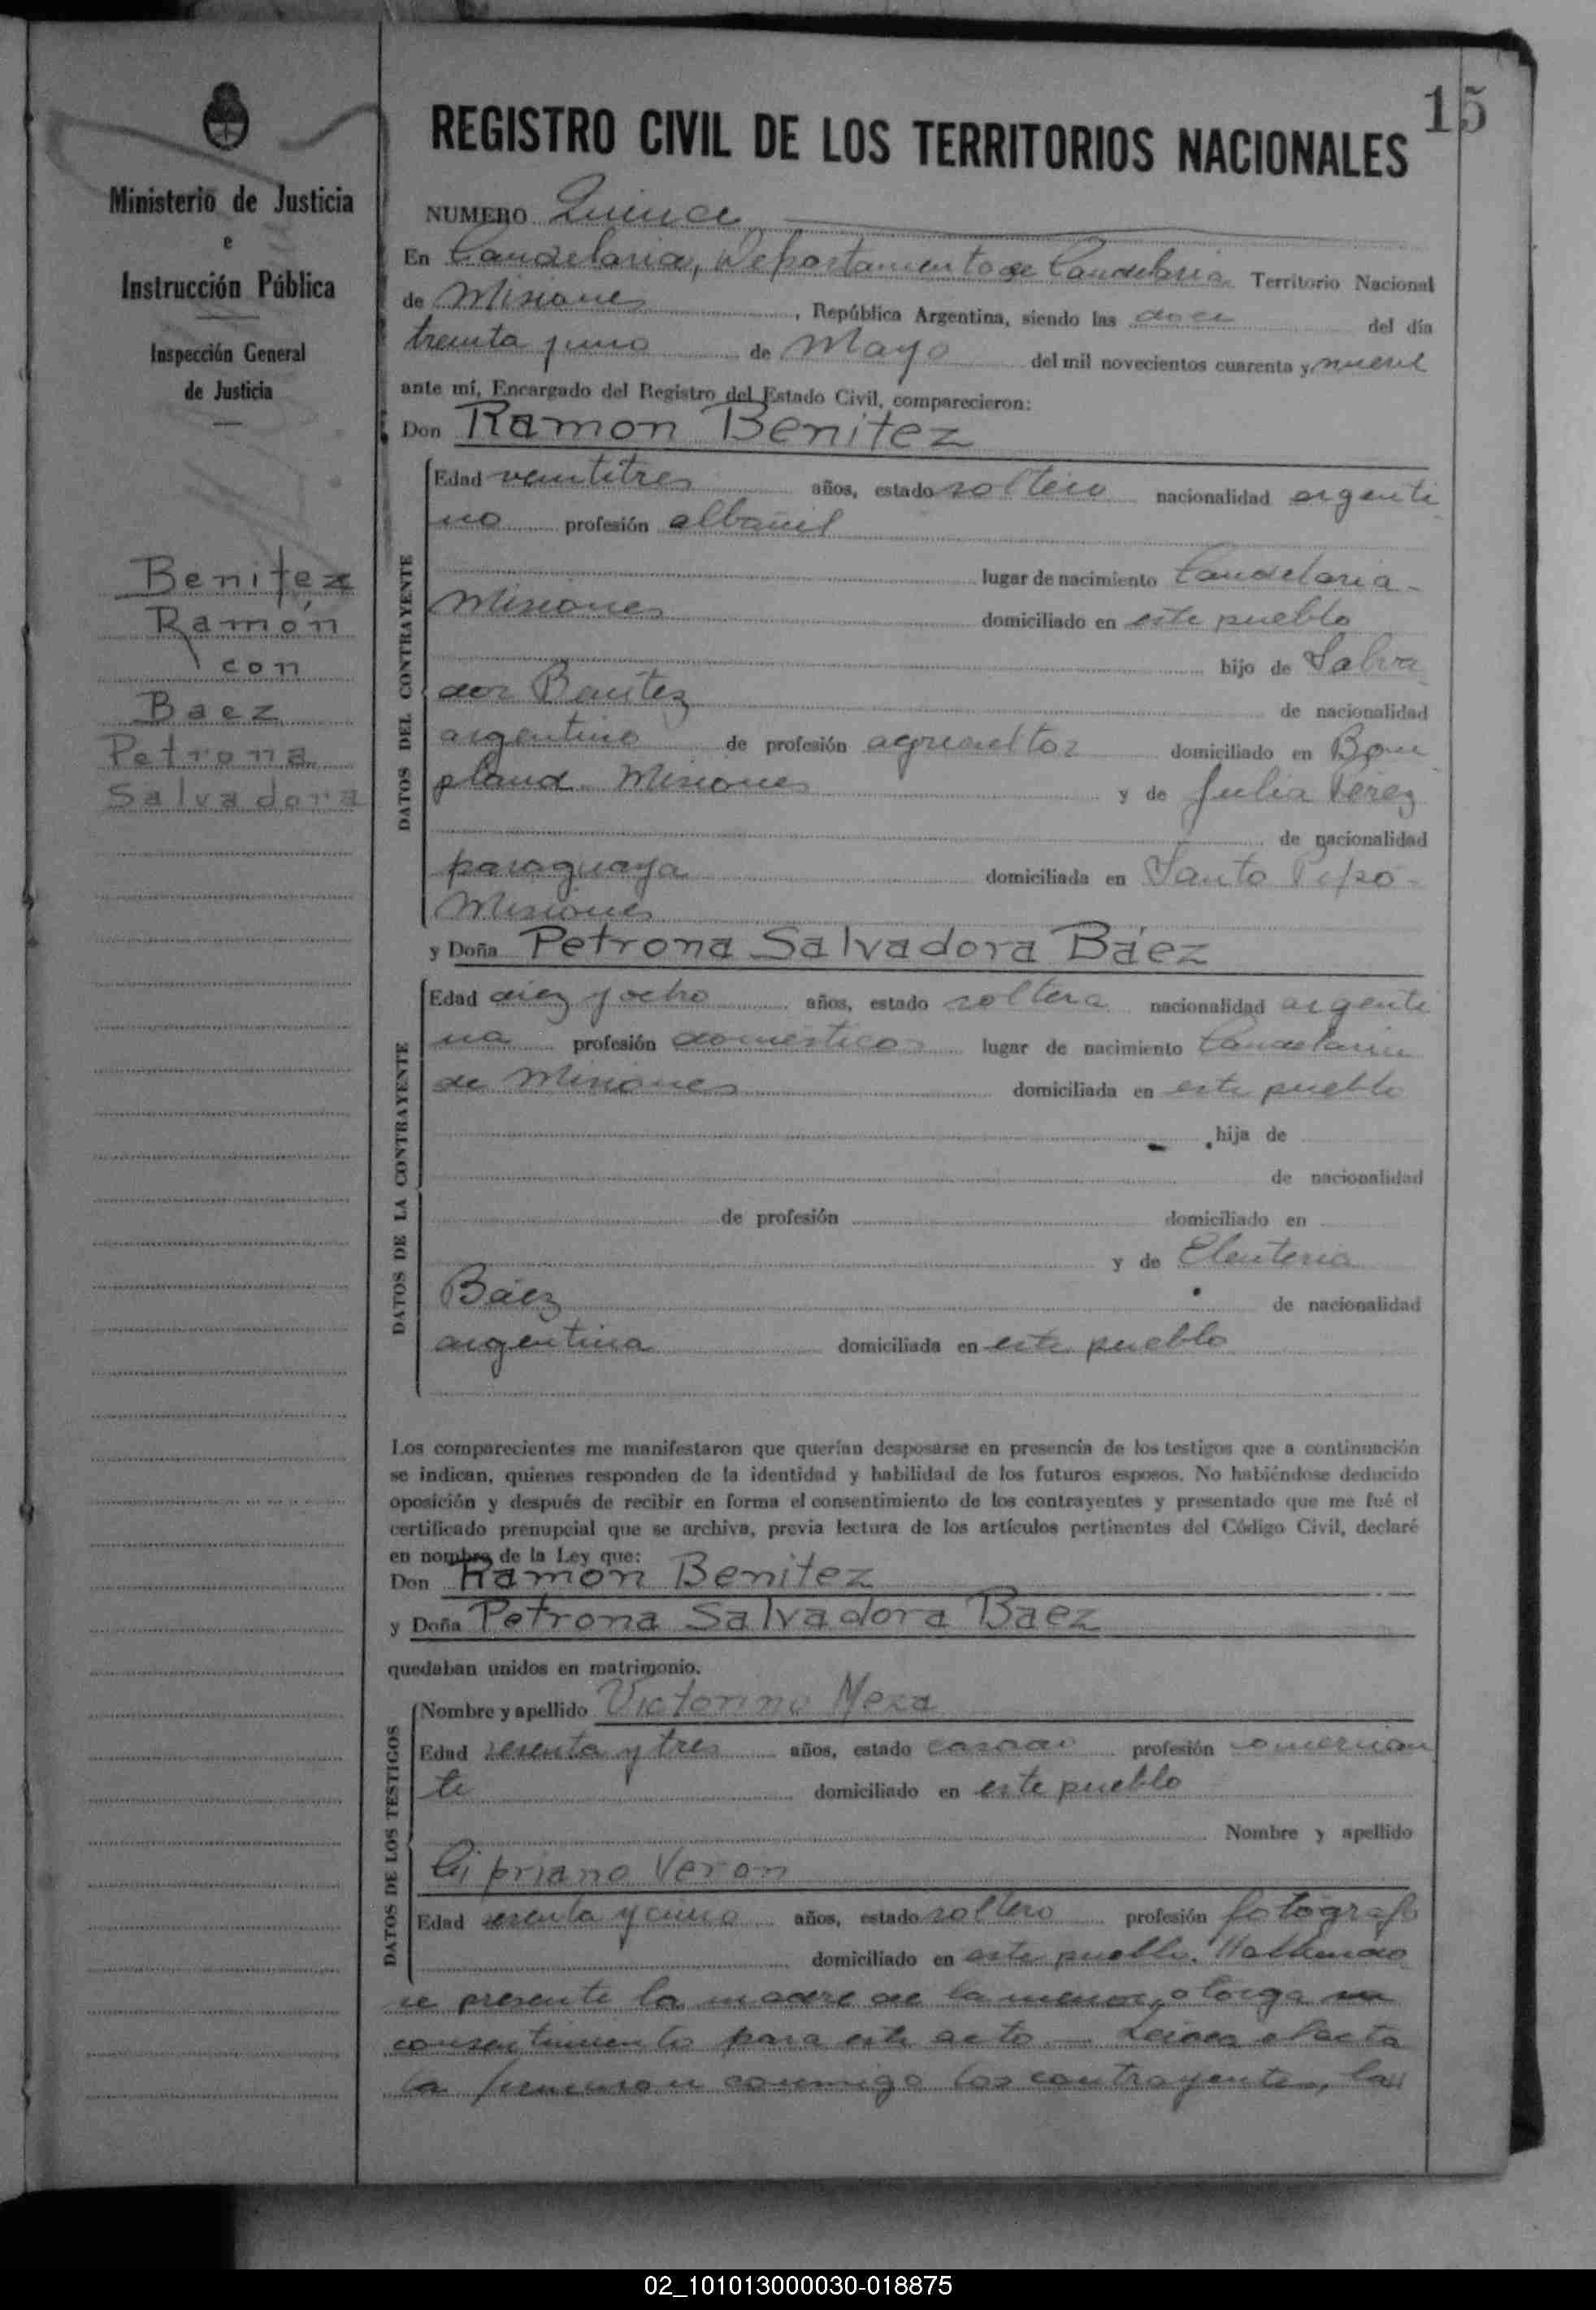 15
REGISTRO CIVIL DE LOS TERRITORIOS NACIONALES
Ministerio de Justicia
e
Instrucción Pública
Inspección General
de Justicia
Benitez
Ramón
con
Baez
Petrona
Salvadora
NUMERO Quince
En Candelaria, Departamento de Candelaria Territorio Nacional
de Misiones, República Argentina, siendo las doce del día
treinta y uno de Mayo del mil novecientos cuarenta y nueve
ante mí, Encargado del Registro del Estado Civil, comparecieron:
Don Ramon Benitez
DATOS DEL CONTRAYENTE
Edad veintitres años, estado soltero nacionalidad argenti
no profesión albañil
lugar de nacimiento Candelaria -
Misiones domiciliado en este pueblo
hijo de Salva
dor Benitez de nacionalidad
argentino de profesión agricultor domiciliado en Bon
pland Misiones y de Julia Perez
de nacionalidad
paraguaya domiciliada en Santo Pipo -
Misiones
y Doña Petrona Salvadora Báez
DATOS DE LA CONTRAYENTE
Edad diez y ocho años, estado soltera nacionalidad argenti
na profesión domesticos lugar de nacimiento Candelaria
de Misiones domiciliada en este pueblo
hija de
de nacionalidad
de profesión domiciliado en
y de Eleuteria
Báez de nacionalidad
argentina domiciliada en este pueblo
Los comparecientes me manifestaron que querían desposarse en presencia de los testigos que a continuación
se indican, quienes responden de la identidad y habilidad de los futuros esposos. No habiéndose deducido
oposición y después de recibir en forma el consentimiento de los contrayentes y presentado que me fué el
certificado prenupcial que se archiva, previa lectura de los artículos pertinentes del Código Civil, declaré
en nombre de la Ley que:
Don Ramon Benitez
y Doña Petrona Salvadora Baez
quedaban unidos en matrimonio.
DATOS DE LOS TESTIGOS
Nombre y apellido Victorino Meza
Edad sesenta y tres años, estado casado profesión comercian
te domiciliado en este pueblo
Nombre y apellido
Cipriano Veron
Edad sesenta y cinco años, estado soltero profesión fotógrafo
domiciliado en este pueblo. Hallando
se presente la madre de la menor, otorga su
consentimiento para este acto. — Leida el acta
la firmaron conmigo los contrayentes, la
02_101013000030-018875